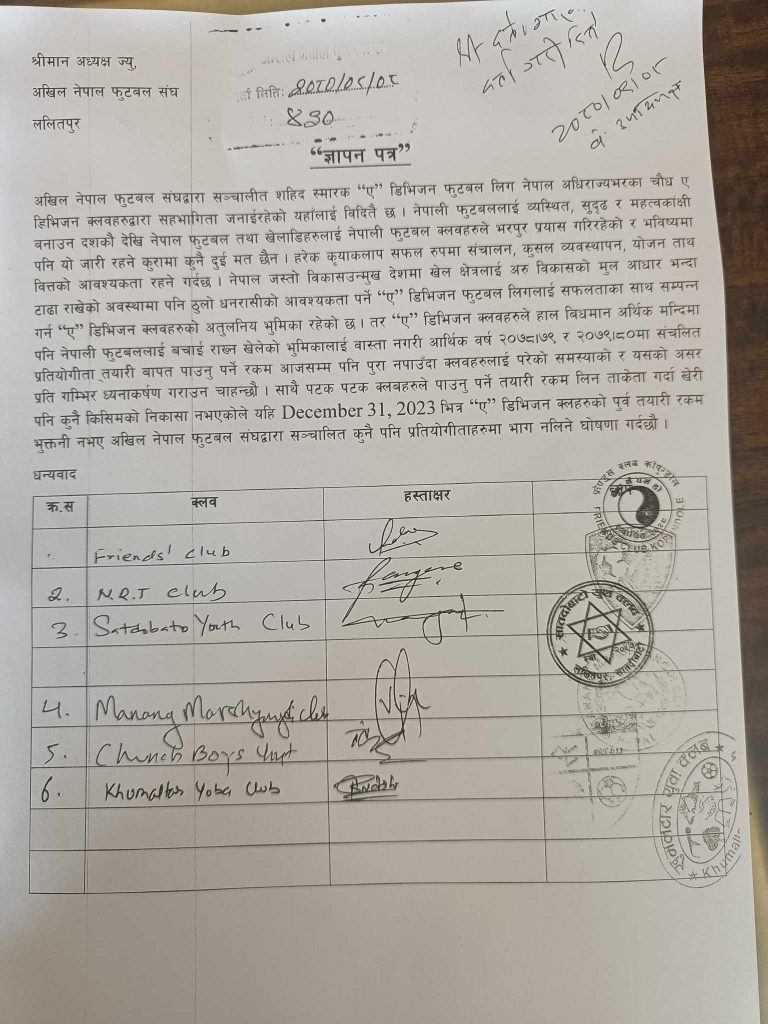 श्रीमान अध्यक्ष ज्यु,
अखिल नेपाल फुटबल संघ
ललितपुर
मिति:
830
श्री
दर्ता गरी दिनो
"ज्ञापन पत्र"
अखिल नेपाल फुटबल संघद्वारा सञ्चालीत शहिद स्मारक "ए" डिभिजन फुटबल लिग नेपाल अधिराज्यभरका चौध ए
डिभिजन क्लवहरुद्वारा सहभागिता जनाईरहेको यहाँलाई विदितै छ । नेपाली फुटबललाई व्यस्थित, सुदृढ र महत्वकांक्षी
बनाउन दशकौ देखि नेपाल फुटबल तथा खेलाडिहरुलाई नेपाली फुटबल क्लवहरुले भरपुर प्रयास गरिरहेको र भविष्यमा
पनि यो जारी रहने कुरामा कुनै दुई मत छैन । हरेक कृयाकलाप सफल रुपमा संचालन, कुसल व्यवस्थापन, योजन ताथ
वित्तको आवश्यकता रहने गर्दछ । नेपाल जस्तो विकासउन्मुख देशमा खेल क्षेत्रलाई अरु विकासको मुल आधार भन्दा
टाढा राखेको अवस्थामा पनि ठुलो धनरासीको आवश्यकता पर्ने "ए" डिभिजन फुटबल लिगलाई सफलताका साथ सम्पन्न
गर्न "ए" डिभिजन क्लवहरुको अतुलनिय भुमिका रहेको छ । तर "ए" डिभिजन क्लवहरुले हाल विधमान अर्थिक मन्दिमा
पनि नेपाली फुटबललाई बचाई राख्न खेलेको भुमिकालाई वास्ता नगरी आर्थिक वर्ष २०७८।७९ र २०७९।८०मा संचलित
प्रतियोगीता तयारी बापत पाउनु पर्ने रकम आजसम्म पनि पुरा नपाउँदा क्लवहरुलाई परेको समस्याको र यसको असर
प्रति गम्भिर ध्यनाकर्षण गराउन चाहन्छौ । साथै पटक पटक क्लबहरुले पाउनु पर्ने तयारी रकम लिन ताकेता गर्दा खेरी
पनि कुनै किसिमको निकासा नभएकोले यहि December 31, 2023 भित्र "ए" डिभिजन क्लहरुको पुर्व तयारी रकम
भुक्तनी नभए अखिल नेपाल फुटबल संघद्वारा सञ्चालित कुनै पनि प्रतियोगीताहरुमा भाग नलिने घोषणा गर्दछौ ।
धन्यवाद
क्र.स क्लव हस्ताक्षर
Friends' Club
2. N.R.T Club
3. Satdobato Youth Club
4. Manang Marshyangdi Club
5. Church Boys Unit
6. Khumaltar Yoba Club
FRIENDS CLUB
सातदोबाटो युथ क्लव
ललितपुर, सातदोबाटो
खुमलटार युवा क्लब
Khumall